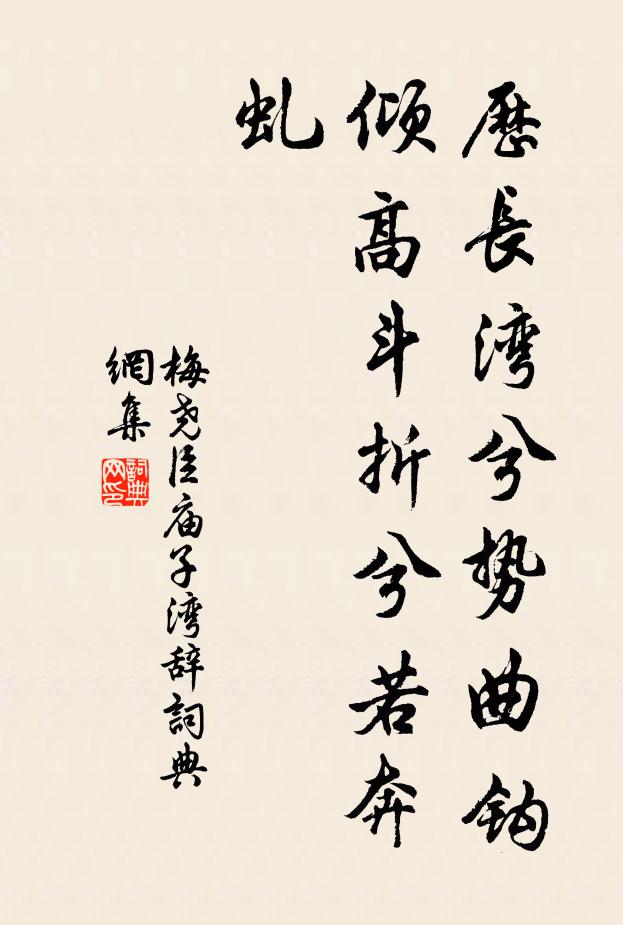 歷長湾兮勢曲鈎
倾高斗折兮若奔
虬
梅尧臣庙子湾辞詞典
網集
詞典网印